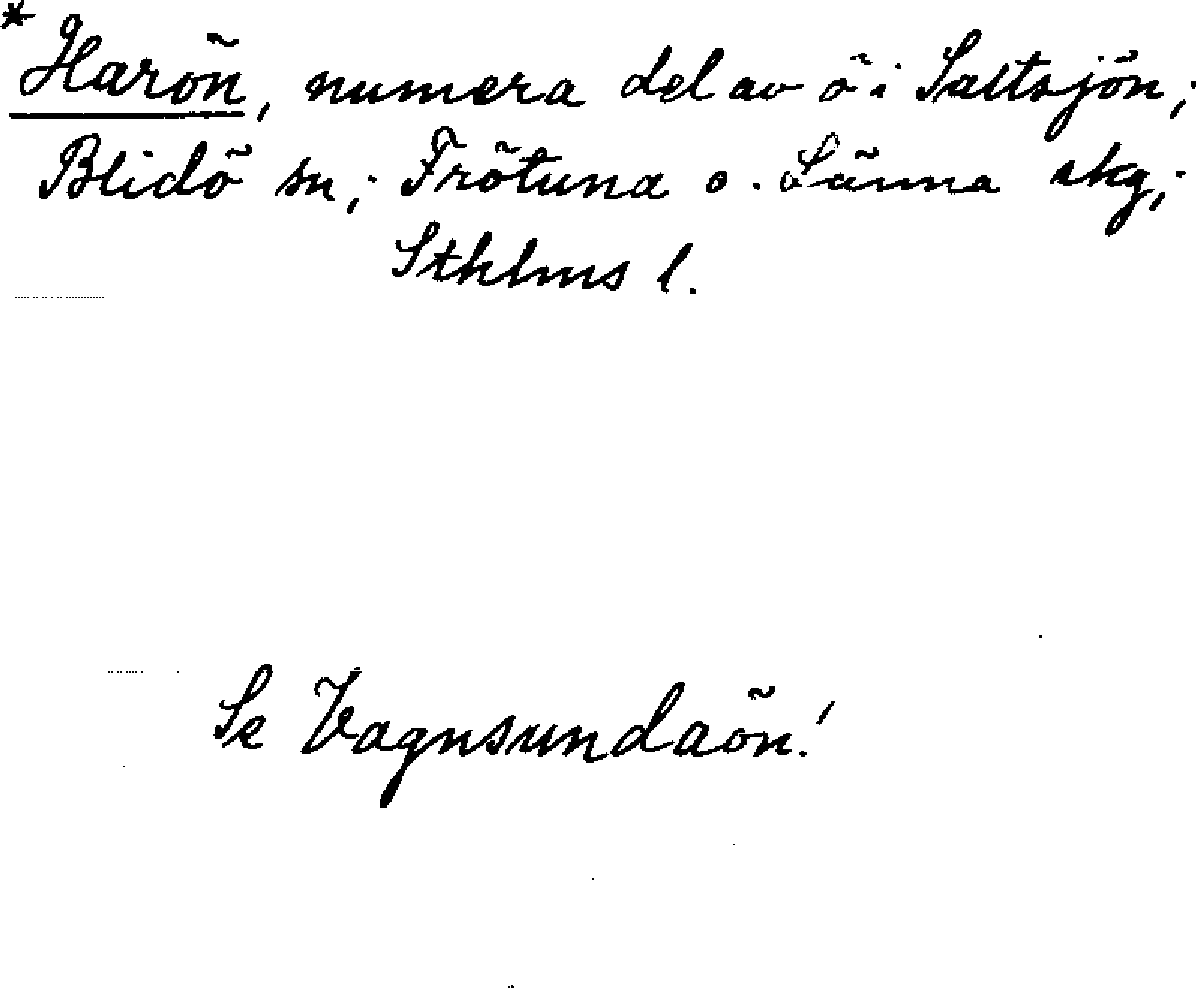 * Harön, numera del av ö i Saltsjön;
Blidö sn; Frötuna o. Länna skg;
Sthlms l.
Se Vagnsundaön!